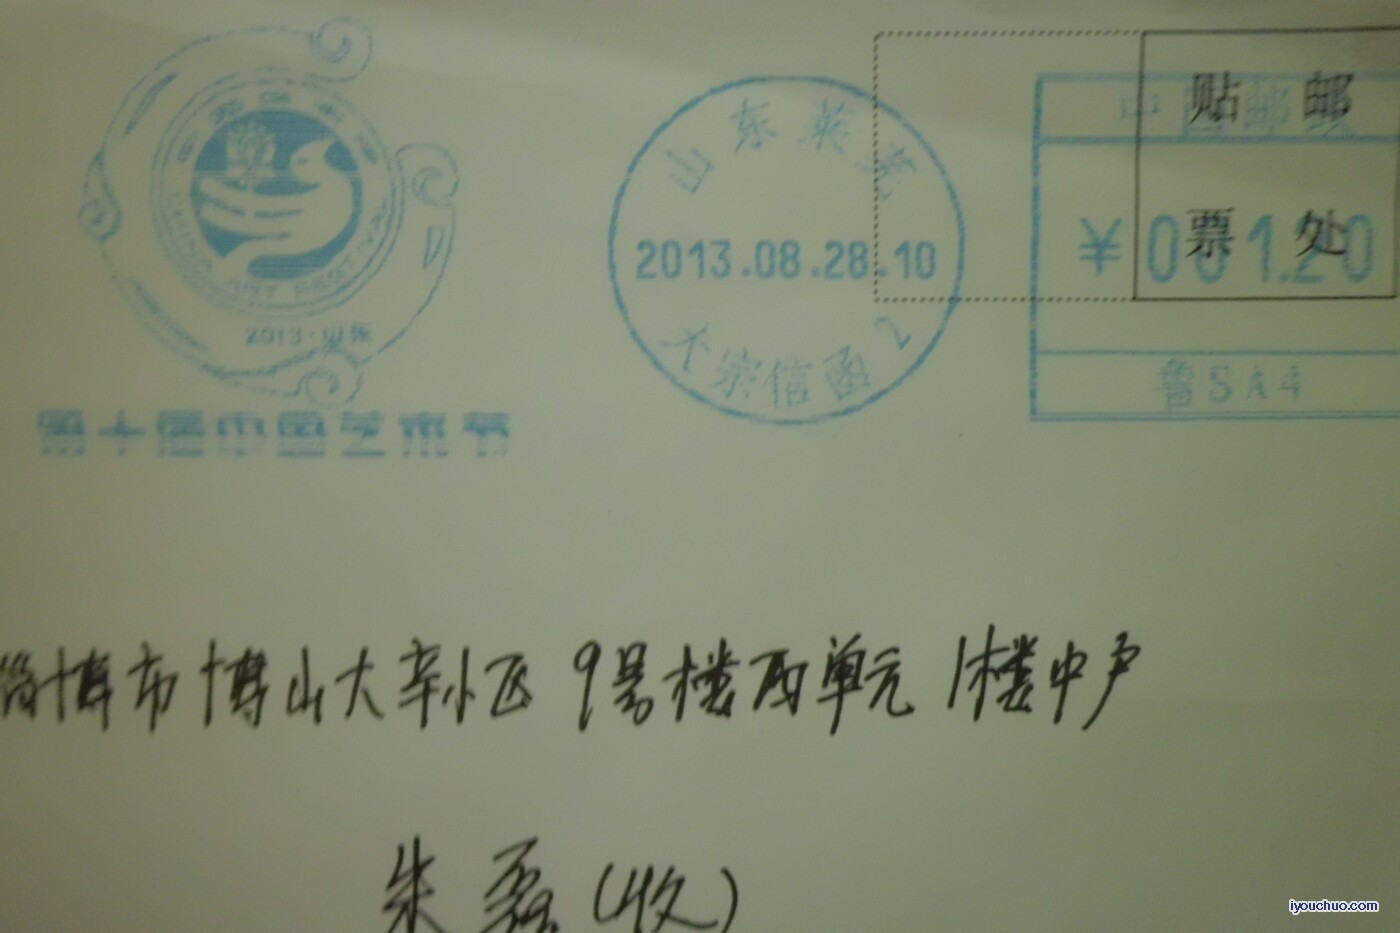 CHINA ART FESTIVAL
2013·山东
第十届中国艺术节
山东莱芜
2013.08.28.10
大宗信函2
中国邮政
¥001.20
鲁SA4
贴邮
票处
淄博市博山大辛小区 9号楼西单元 1楼中户
朱磊(收)
iyouchuo.com